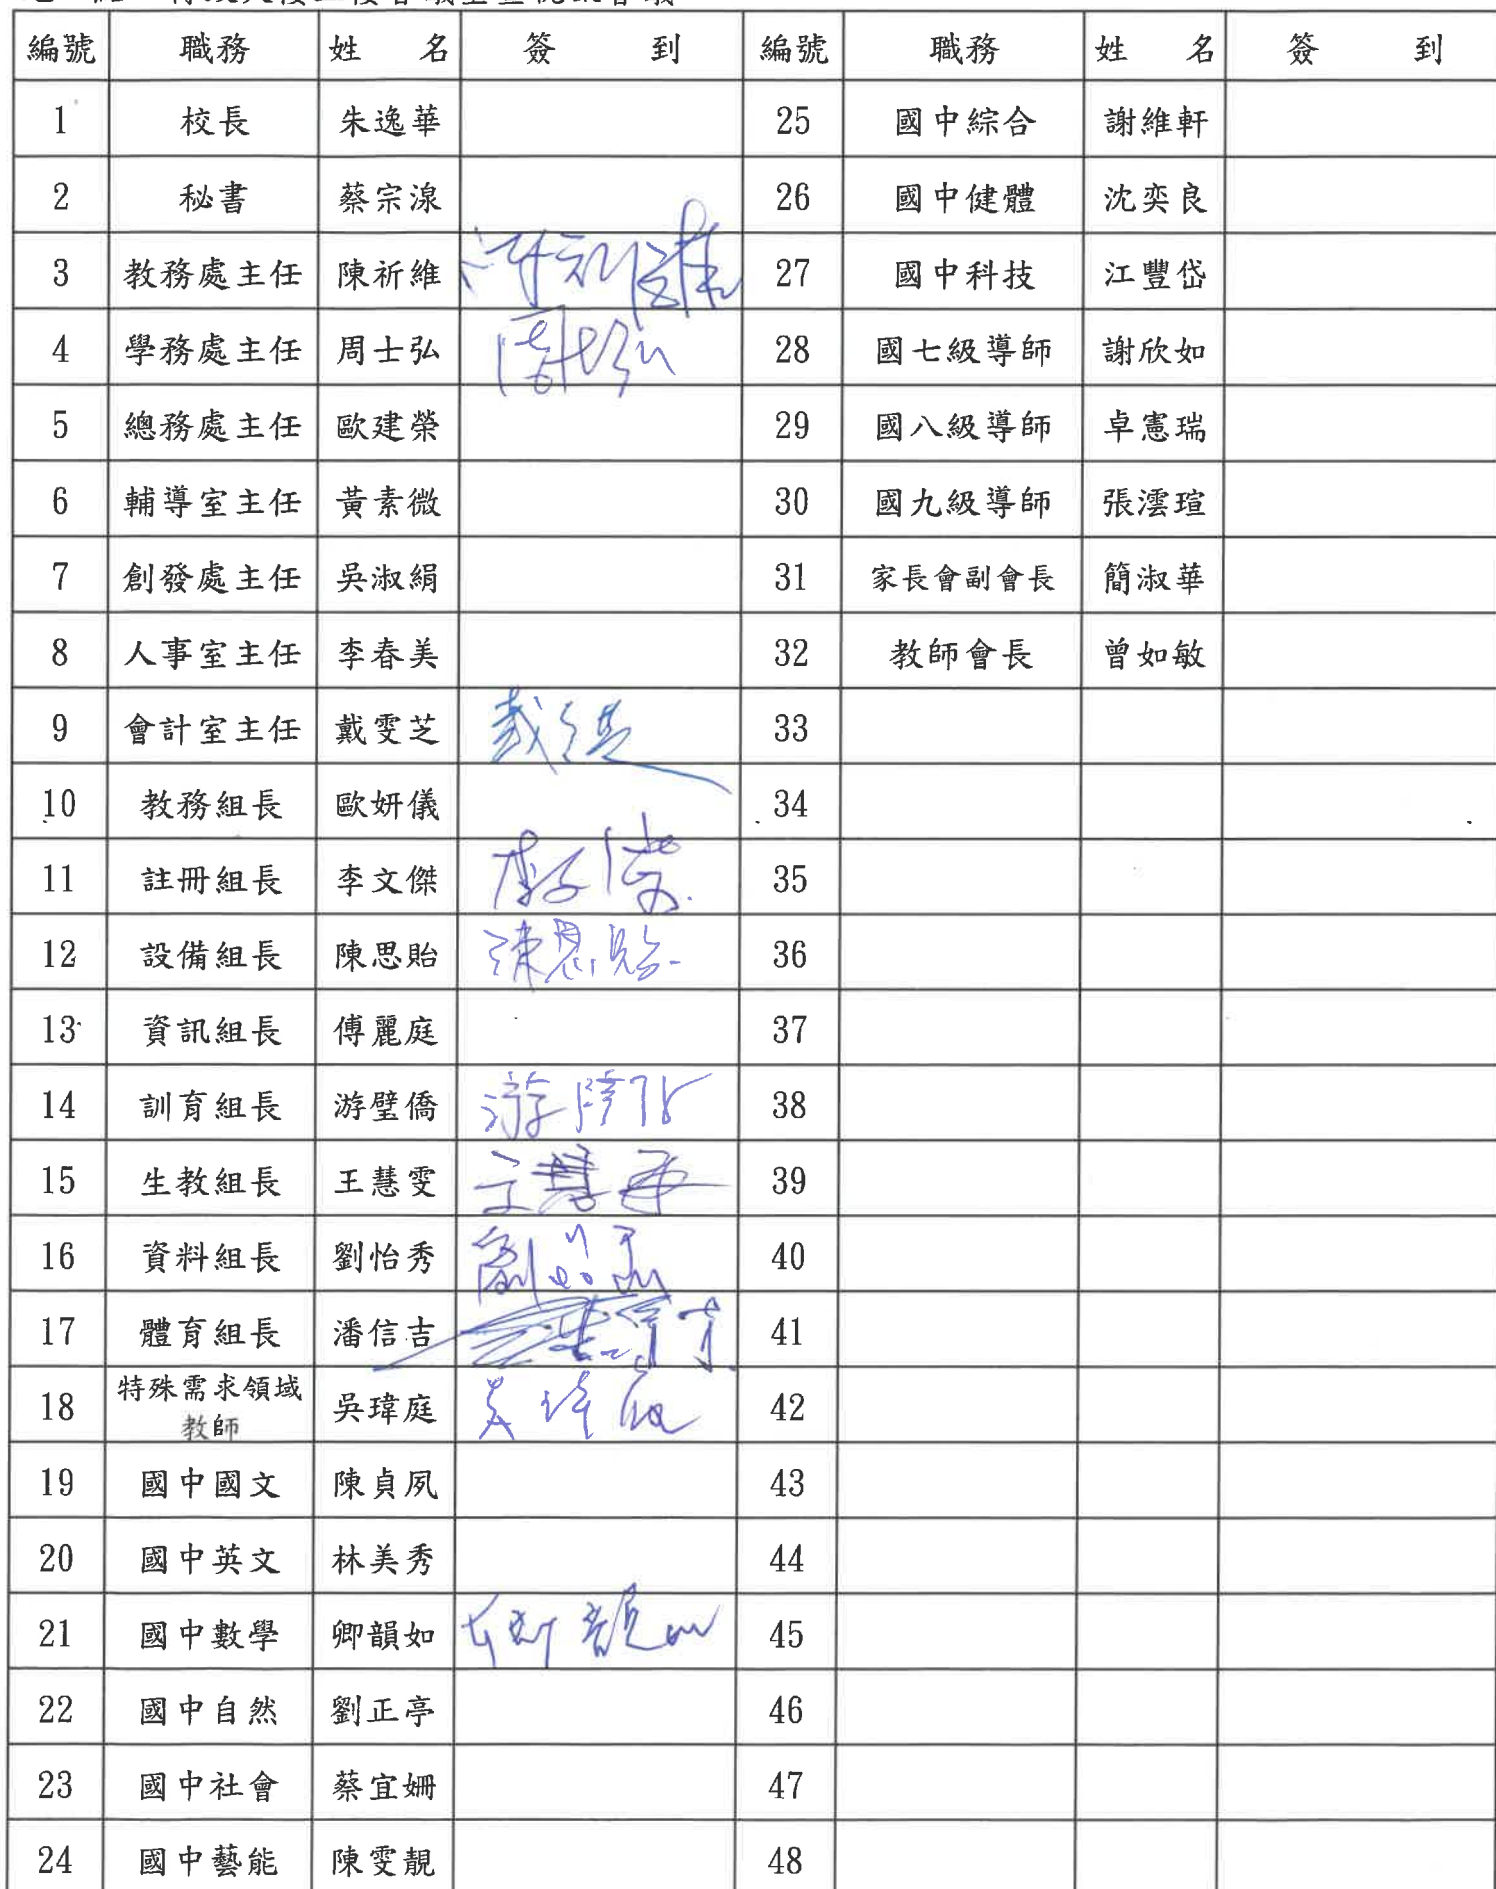 編號 職務 姓名 簽到 編號 職務 姓名 簽到
1 校長 朱逸華 25 國中綜合 謝維軒
2 秘書 蔡宗湶 26 國中健體 沈奕良
3 教務處主任 陳祈維 陳祈維 27 國中科技 江豐岱
4 學務處主任 周士弘 周士弘 28 國七級導師 謝欣如
5 總務處主任 歐建榮 29 國八級導師 卓憲瑞
6 輔導室主任 黃素微 30 國九級導師 張澐瑄
7 創發處主任 吳淑絹 31 家長會副會長 簡淑華
8 人事室主任 李春美 32 教師會長 曾如敏
9 會計室主任 戴雯芝 33
10 教務組長 歐妍儀 34
11 註冊組長 李文傑 35
12 設備組長 陳思貽 陳思貽 36
13 資訊組長 傅麗庭 37
14 訓育組長 游璧僑 38
15 生教組長 王慧雯 王慧雯 39
16 資料組長 劉怡秀 劉怡秀 40
17 體育組長 潘信吉 41
18 特殊需求領域 吳瑋庭 吳瑋庭 42
教師
19 國中國文 陳貞夙 43
20 國中英文 林美秀 44
21 國中數學 卿韻如 卿韻如 45
22 國中自然 劉正亭 46
23 國中社會 蔡宜姍 47
24 國中藝能 陳雯靚 48